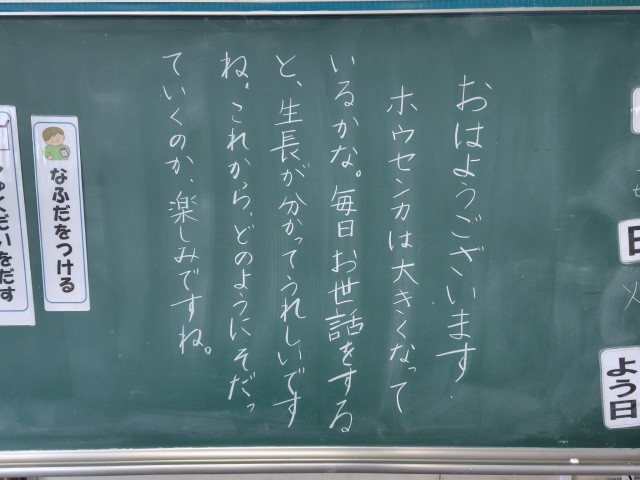 おはようございます.
ホウセンカは大きくなって
いるかな。毎日お世話をする
と、生長が分かってうれしいです
ね。これから、どのようにそだっ
ていくのか、楽しみですね。
なふだをつける
しゅくだいをだす
日
よう日